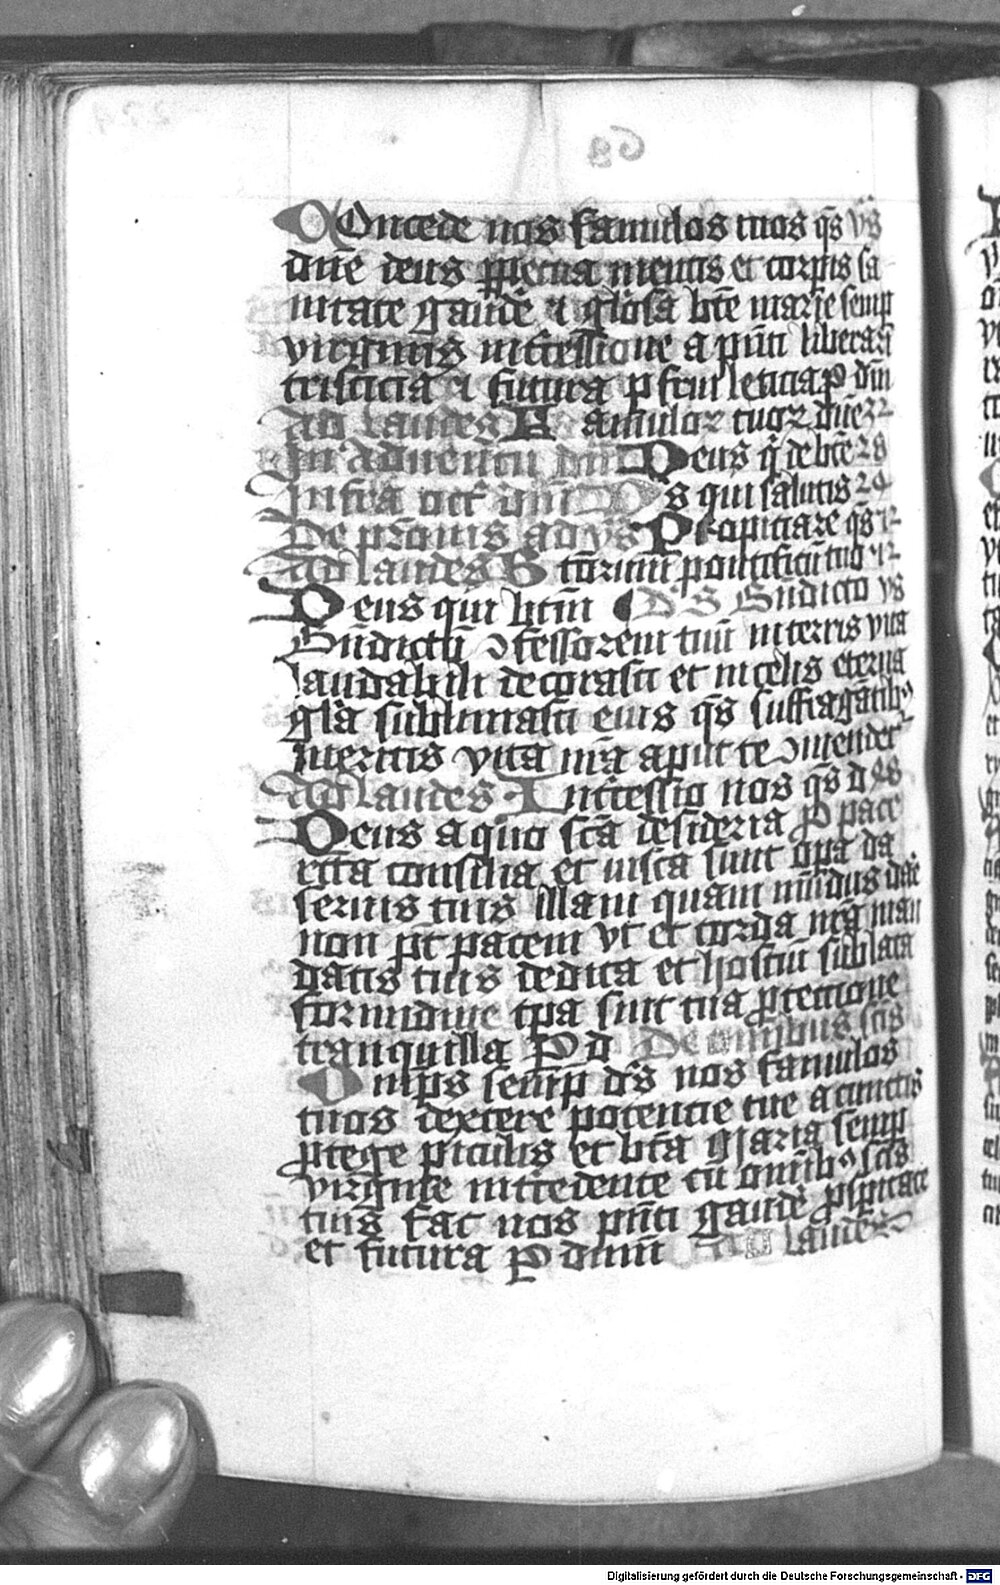 COncede nos famulos tuos qs̄ vs̄
dn̄e deus ꝑpetua mentis et corpis sa
nitate gaudē ⁊ gl̓osa bt̄e marie semp
virginis int̓cessione a pn̄ti liberari
tristicia et futura p frui leticia ꝑ dm̄
Ad laudes Famuloꝝ tuoꝝ dn̄e
In aduentu dn̄i Deus q̄ de bt̄e
Infra oct̓ dn̄i Ds qui salutis
De pr̄onis ad vs̄ Propiciare qs̄
Ad laudes
Deus qui btm̄ Bn̄dicto vs
Bn̄dictū ꝯfessorem tuū in terris vita
laudabili decorasti et in celis eterna
gl̄a sublimasti eius qs̄ suffragātibꝰ
meritis vita nr̄a aput te ꝯmendet̓
Ad laudes Int̓cessio nos qs̄ d
Deus a quo sc̄a desideria P pace
rc̄ta consilia et iusta sunt opa da
seruis tuis illam quam mūdus dare
non pt̄ pacem vt et corda nr̄a man
datis tuis dedita et hostiū sublata
formidine tpa sint tua ꝓtectione
tranquilla P d De omnibus sc̄is
Om̄ps semp ds̄ nos famulos
tuos dextere potencie tue a cunctis
ꝓtege piculis et bt̄a Maria semp
virgine int̓cedente cū omībꝰ sc̄is
tuis fac nos pn̄ti gaudē ꝓspitate
et futura P dominū Ad laudes
Digitalisierung gefördert durch die Deutsche Forschungsgemeinschaft - DFG